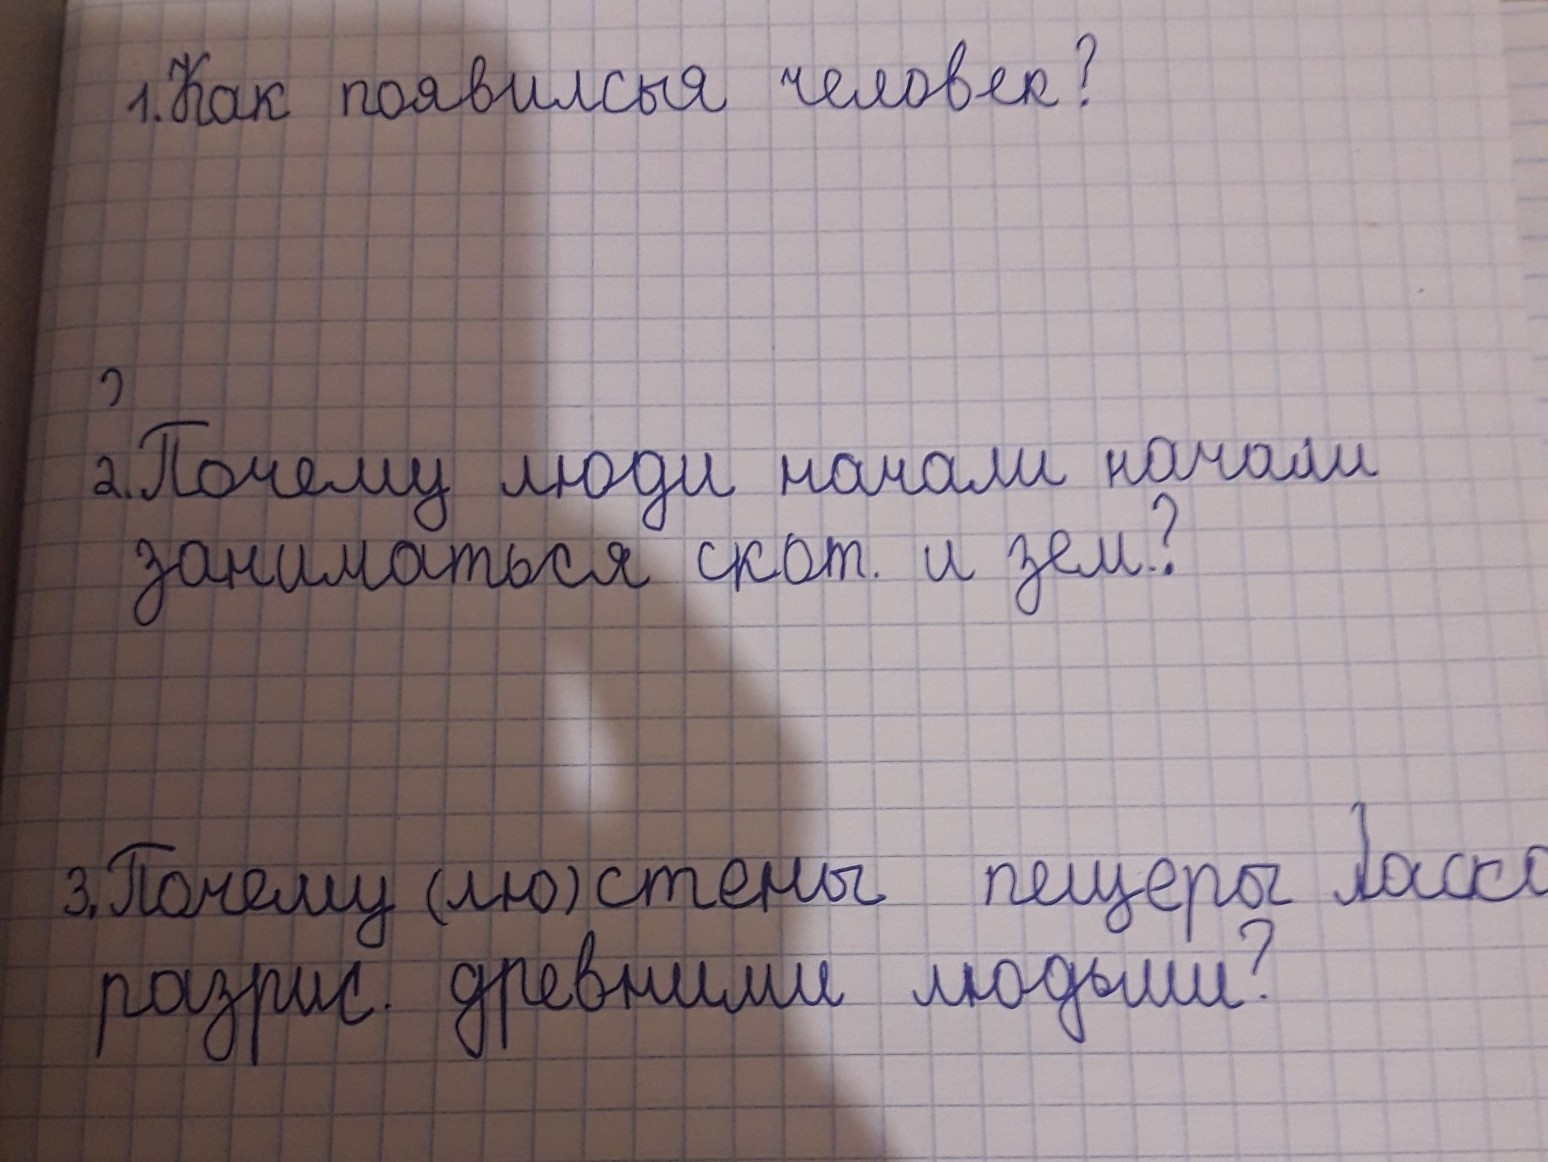 1. Как появилсыя человек?
?
2. Почему люди начали начали
заниматься скот. и зем.?
3. Почему (лю) стены пещеры Ласко
разрис. древними людьми?